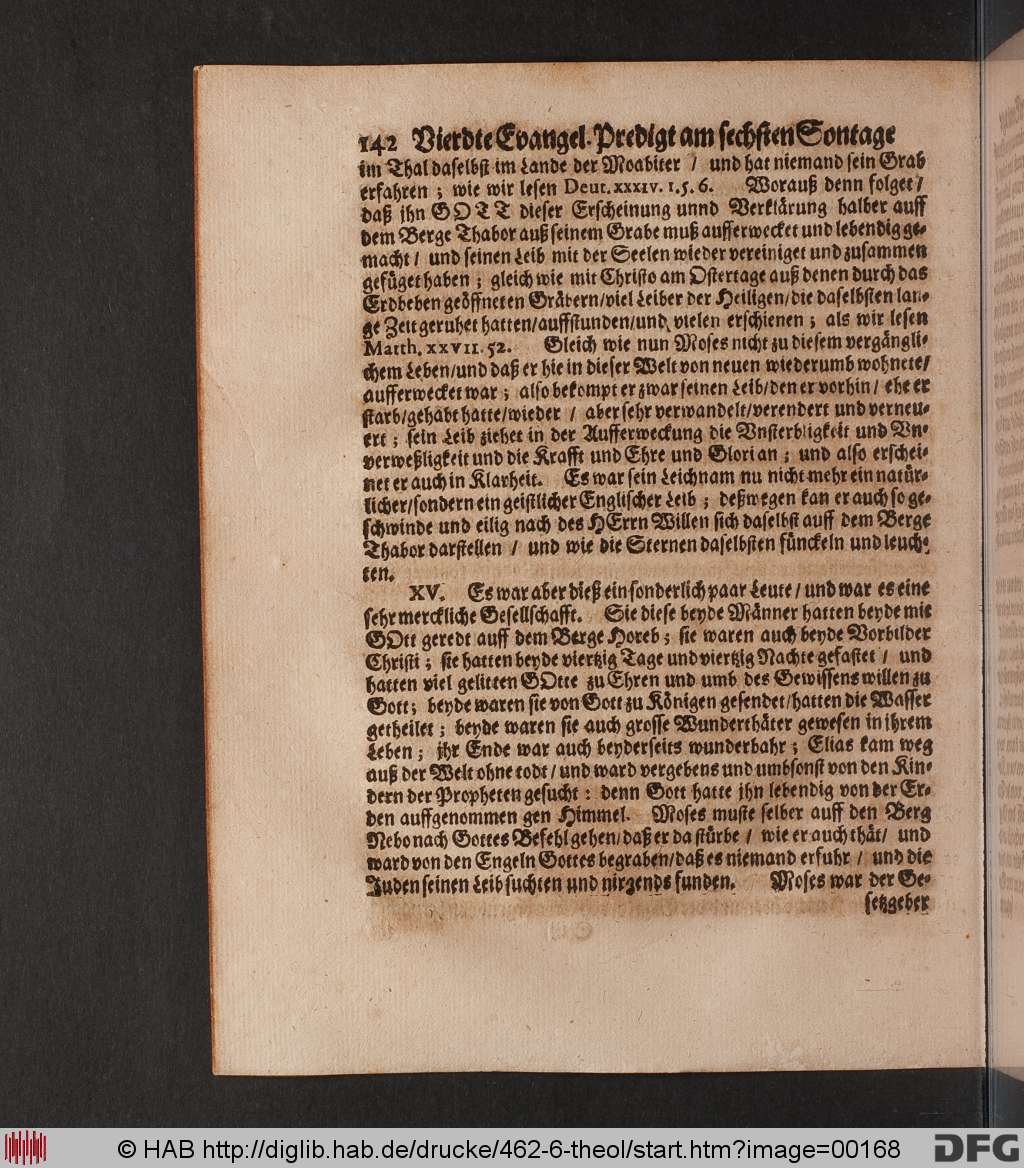 142 Vierdte Evangel. Predigt am sechsten Sontage
im Thal daselbst im Lande der Moabiter / und hat niemand sein Grab
erfahren ; wie wir lesen Deut. xxxiv. 1. 5. 6. Worauß denn folget /
daß jhn GOTT dieser Erscheinung unnd Verklärung halber auff
dem Berge Thabor auß seinem Grabe muß aufferwecket und lebendig ge-
macht / und seinen Leib mit der Seelen wieder vereiniget und zusammen
gefüget haben ; gleich wie mit Christo am Ostertage auß denen durch das
Erdbeben geöffneten Gräbern/viel Leiber der Heiligen/die daselbsten lan-
ge Zeit geruhet hatten/auffstunden/und vielen erschienen ; als wir lesen
Matth. xxvii. 52. Gleich wie nun Moses nicht zu diesem vergängli-
chem Leben/und daß er hie in dieser Welt von neuen wiederumb wohnete/
aufferwecket war ; also bekompt er zwar seinen Leib/den er vorhin / ehe er
starb/gehabt hatte/wieder / aber sehr verwandelt/verendert und verneu-
ert ; sein Leib ziehet in der Aufferweckung die Vnsterbligkeit und Vn-
verweßligkeit und die Krafft und Ehre und Glori an ; und also erschei-
net er auch in Klarheit. Es war sein Leichnam nu nicht mehr ein natür-
licher/sondern ein geistlicher Englischer Leib ; deßwegen kan er auch so ge-
schwinde und eilig nach des HErrn Willen sich daselbst auff dem Berge
Thabor darstellen / und wie die Sternen daselbsten fünckeln und leuch-
ten.
XV. Es war aber dieß ein sonderlich paar Leute / und war es eine
sehr merckliche Gesellschafft. Sie diese beyde Männer hatten beyde mit
GOtt geredt auff dem Berge Horeb ; sie waren auch beyde Vorbilder
Christi ; sie hatten beyde viertzig Tage und viertzig Nachte gefastet / und
hatten viel gelitten GOtte zu Ehren und umb des Gewissens willen zu
Gott ; beyde waren sie von Gott zu Königen gesendet/hatten die Wasser
getheilet ; beyde waren sie auch grosse Wunderthäter gewesen in ihrem
Leben ; jhr Ende war auch beyderseits wunderbahr ; Elias kam weg
auß der Welt ohne todt / und ward vergebens und umbsonst von den Kin-
dern der Propheten gesucht : denn Gott hatte jhn lebendig von der Er-
den auffgenommen gen Himmel. Moses muste selber auff den Berg
Nebo nach Gottes Befehl gehen/daß er da stürbe / wie er auch thät / und
ward von den Engeln Gottes begraben/daß es niemand erfuhr / und die
Juden seinen Leib suchten und nirgends funden. Moses war der Ge-
setzgeber
© HAB http://diglib.hab.de/drucke/462-6-theol/start.htm?image=00168
DFG